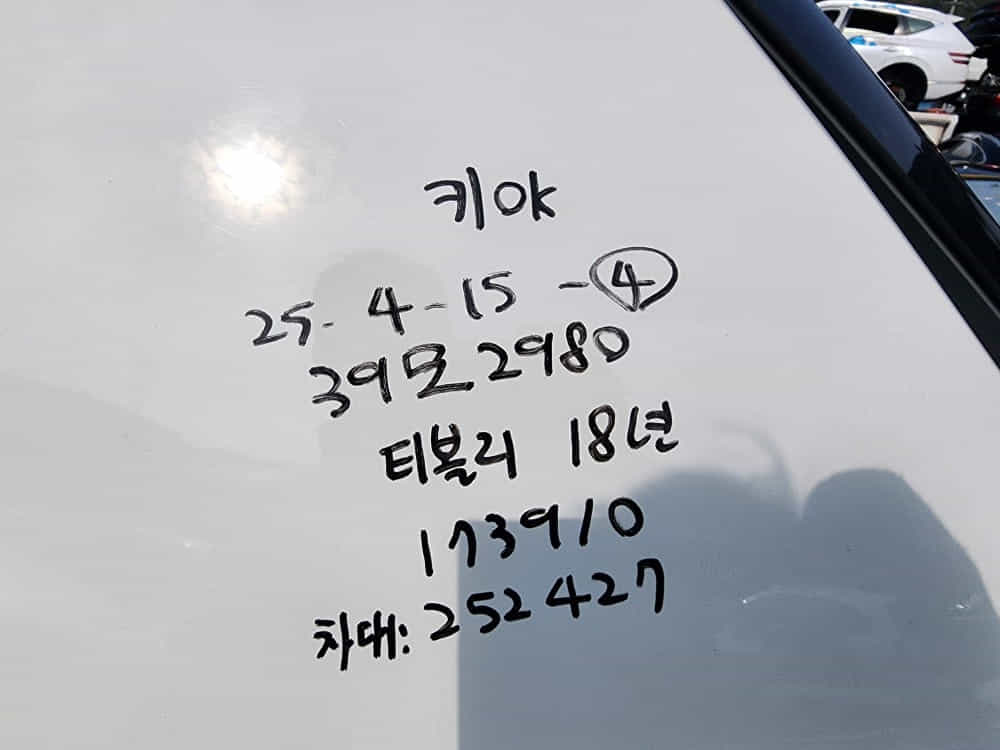 키OK
25- 4-15 -④
39모2980
티볼리 18년
173910
차대: 252427